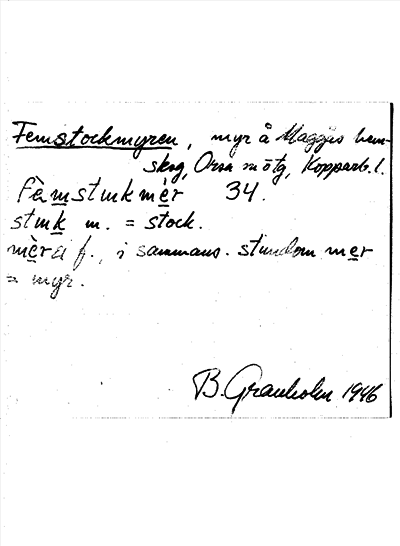 Femstockmyren, myr å Maggås hem-
skog, Orsa mötg, Kopparb. l.
fèmstukmèr 34.
stuk m. = stock.
mèra f., i sammans. stundom mer
= myr.
B. Granholm 1946